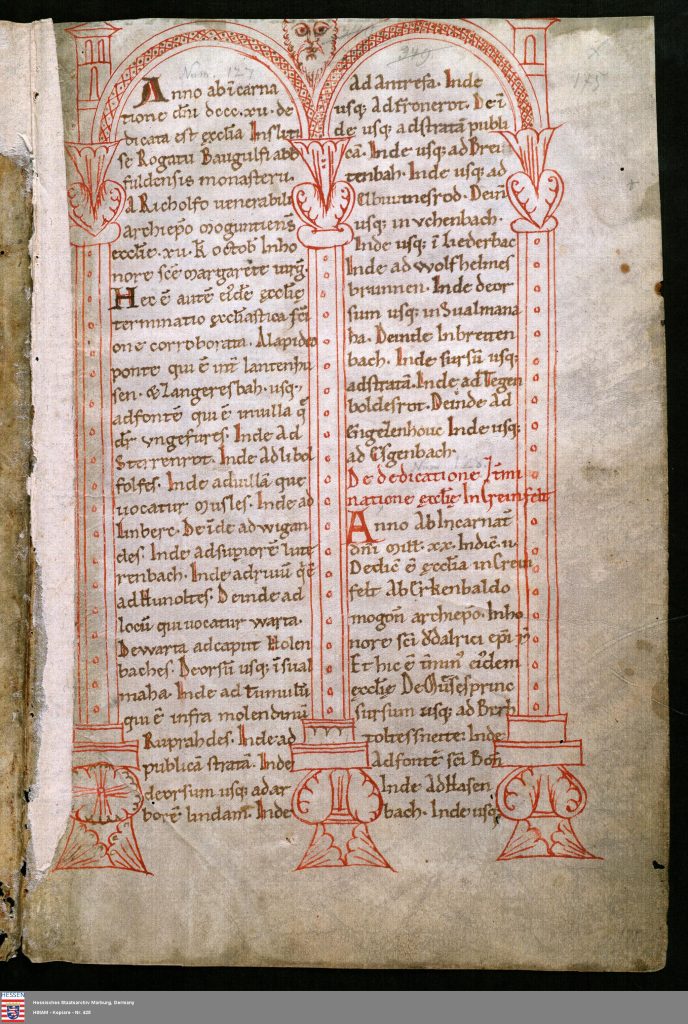 Anno ab īcarna
tione dn̄i dccc. xv. de
dicata est ęcclia In sluti
se Rogatu Baugulfi abb
fuldensis monasterii.
A Richolfo venerabili
archiepo moguntiens
ęcclię. xv. k octob Inho
nore scę margarete uirg.
Hec ē autē eide ęcclię
terminatio ęccliastica
one corroborata. A lapideo
ponte qui ē int lantenhu
sen. & Langeresbah. usq,
ad fontē qui ē in uilla
ungefures. Inde Ad
Sterrenrot. Inde Ad libol
folfes. Inde ad uillā que
uocatur Musles. Inde ad
linberc. De īde ad wigan
des. Inde ad supiorē lute
renbach. Inde ad riuū
ad Hunoltes. Deinde ad
locū qui uocatur warta.
De warta ad caput Holen
baches. Deorsū usq; ī sual
maha. Inde ad tumulū
qui ē infra molendinū
Ruprahdes. Inde ad
publicā stratā. Inde
deorsum usq; ad ar
borē lindam. Inde
ad Antresa. Inde
usq; Ad fronerot. De ī
de usq; ad stratā publi
cā. Inde usq; ad Brei
tenbah. Inde usq; ad
Albwinesrod. Dein
usq; in vchenbach.
Inde usq; ī Liederbac
Inde ad wolfhelmes
brunnen. Inde deor
sum usq; in Sualmana
ha. Deinde In breiten
bach. Inde sursū usq;
ad stratā. Inde ad Tegen
boldesrot. Deinde ad
Engelenhouc Inde usq;
ad Esgenbach
De dedicatione
natione ęcclię In Creinfelt
Anno Ab Incarnat
dn̄i Mill. xx. Indic. ii.
Dedic ē ęcclia in Crein
felt Ab Erkenbaldo
mogon archiepo. Inho
nore sci Ǒdalrici epi
Et hic ē eidem
ęcclię De Musesprinc
sursum usq; ad Birch
toltessneite. Inde
Ad fontē sci Bon
Inde Ad Hasen
bach. Inde usq;
Num. 127
249
175
HESSEN
Hessisches Staatsarchiv Marburg, Germany
HStAM - Kopiare - Nr. 425